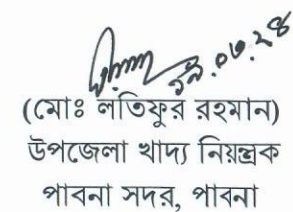 (মোঃ লতিফুর রহমান)
উপজেলা খাদ্য নিয়ন্ত্রক
পাবনা সদর, পাবনা